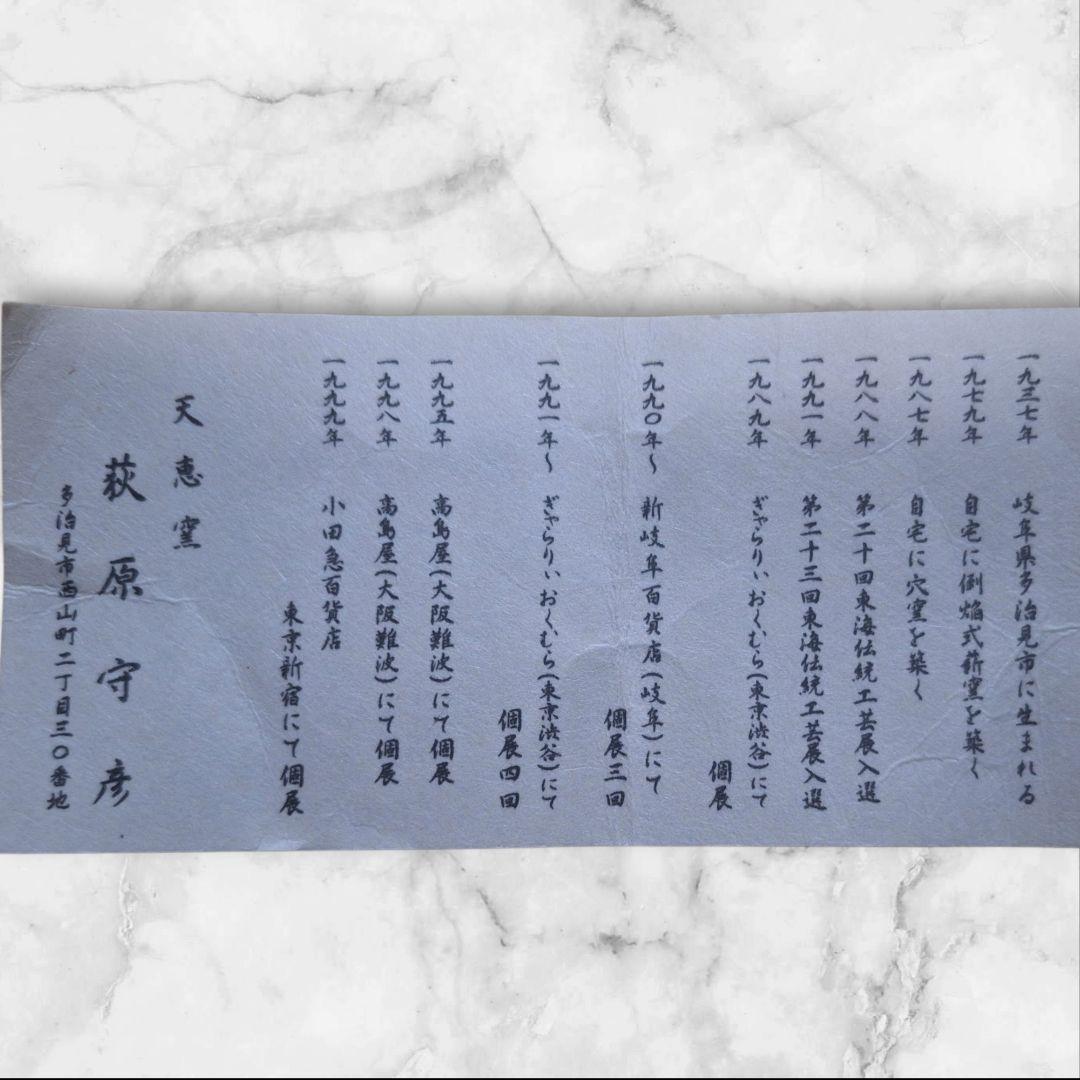 一九三七年 岐阜県多治見市に生まれる
一九七九年 自宅に倒焔式薪窯を築く
一九八七年 自宅に穴窯を築く
一九八八年 第二十回東海伝統工芸展入選
一九九一年 第二十三回東海伝統工芸展入選
一九八九年 ぎゃらりぃおくむら(東京渋谷)にて
個展
一九九〇年〜 新岐阜百貨店(岐阜)にて
個展三回
一九九一年〜 ぎゃらりぃおくむら(東京渋谷)にて
個展四回
一九九五年 高島屋(大阪難波)にて個展
一九九八年 高島屋(大阪難波)にて個展
一九九九年 小田急百貨店
東京新宿にて個展
天恵窯
萩原守彦
多治見市西山町二丁目三〇番地